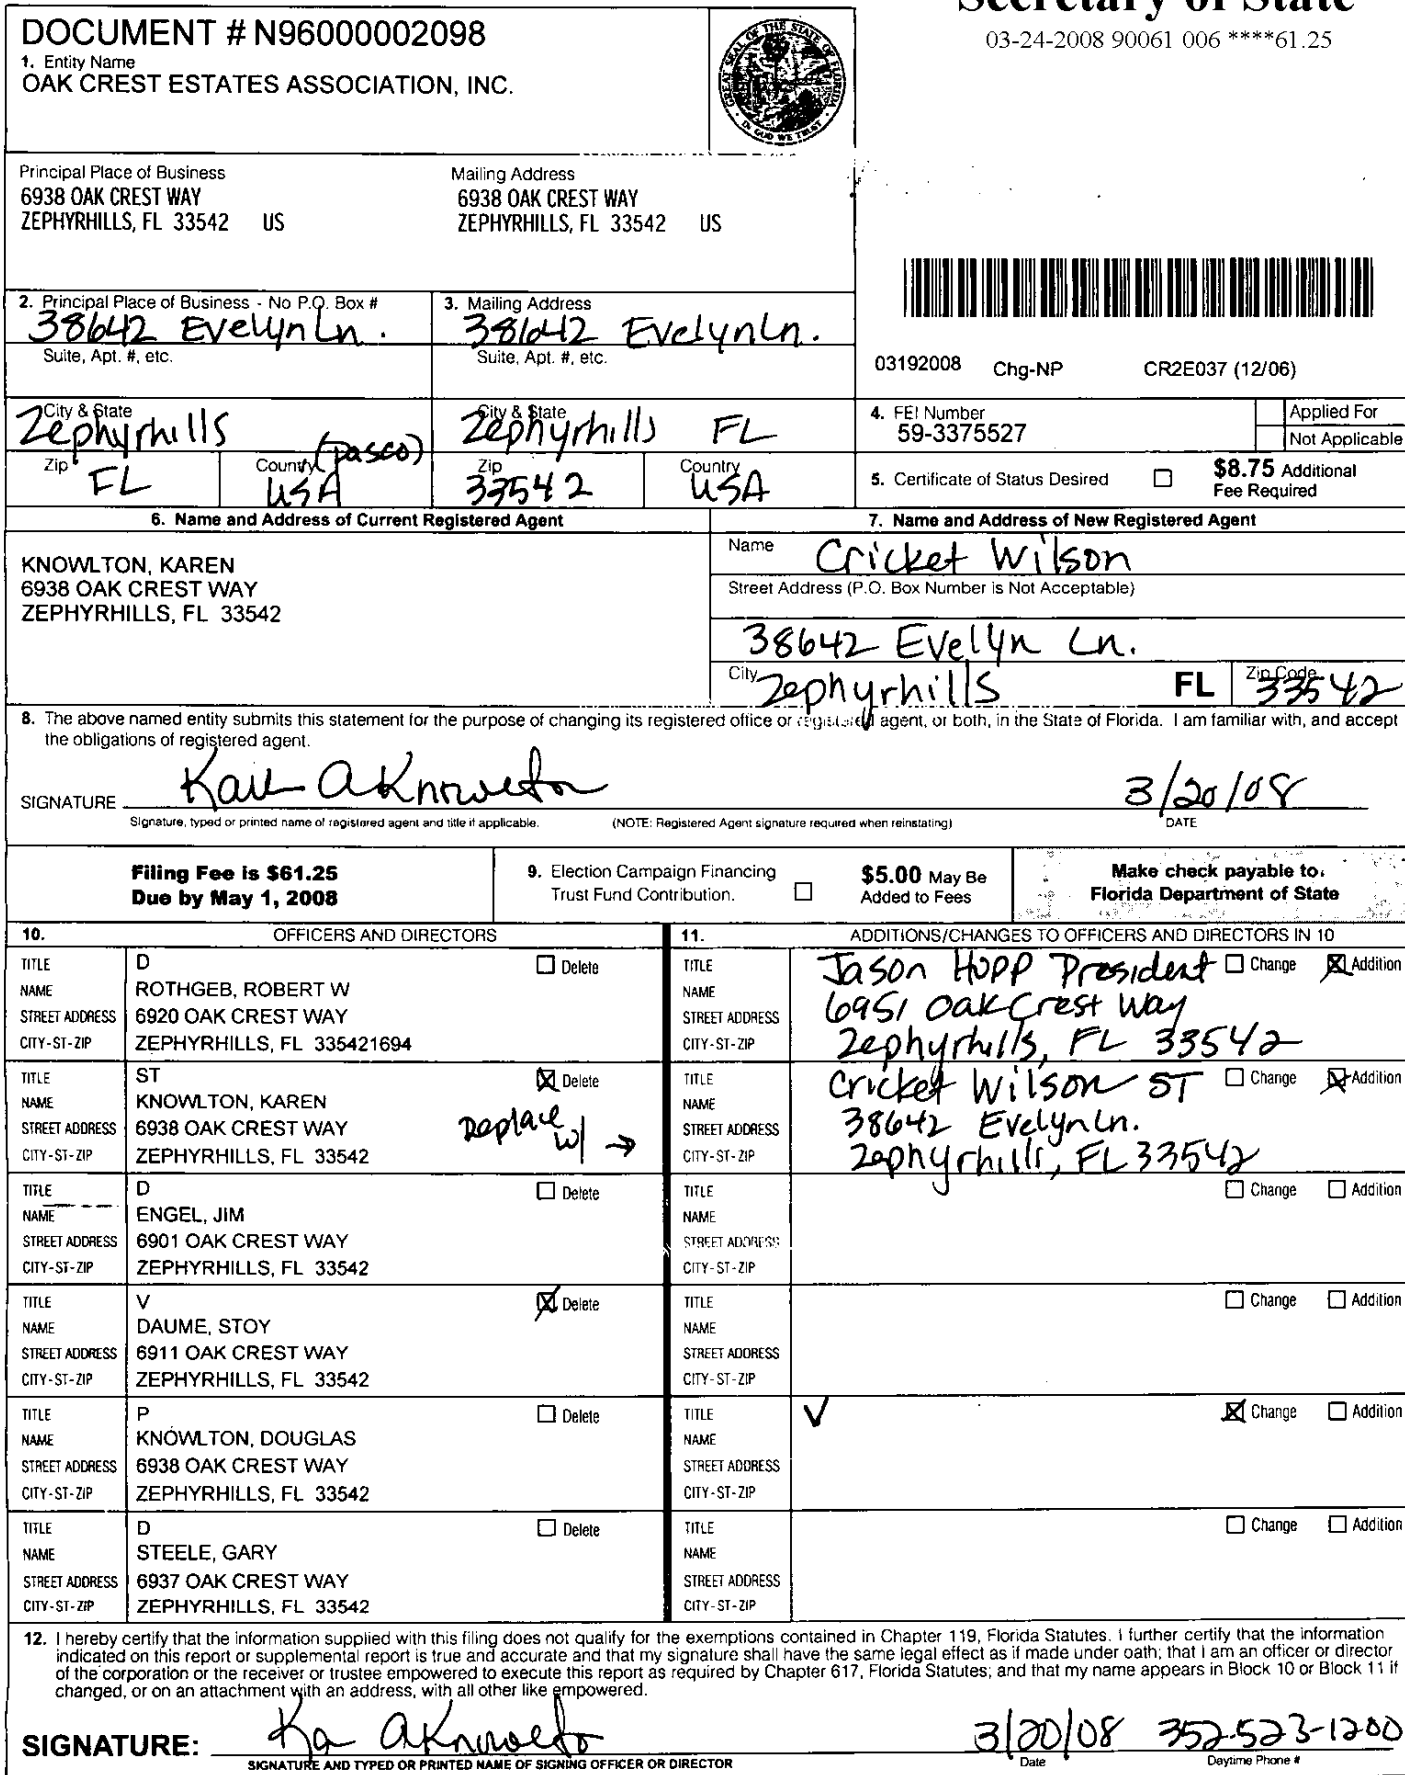 Secretary of State
03-24-2008 90061 006 ****61.25
DOCUMENT # N96000002098
1. Entity Name
OAK CREST ESTATES ASSOCIATION, INC.
GREAT SEAL OF THE STATE OF FLORIDA
IN GOD WE TRUST
Principal Place of Business
6938 OAK CREST WAY
ZEPHYRHILLS, FL 33542 US
Mailing Address
6938 OAK CREST WAY
ZEPHYRHILLS, FL 33542 US
2. Principal Place of Business - No P.O. Box #
38642 Evelyn Ln.
Suite, Apt. #, etc.
3. Mailing Address
38642 Evelyn Ln.
Suite, Apt. #, etc.
03192008 Chg-NP CR2E037 (12/06)
City & State
Zephyrhills
City & State
Zephyrhills FL
Zip
FL
Country (pasco)
USA
Zip
33542
Country
USA
4. FEI Number
59-3375527
Applied For
Not Applicable
5. Certificate of Status Desired
$8.75 Additional
Fee Required
6. Name and Address of Current Registered Agent
KNOWLTON, KAREN
6938 OAK CREST WAY
ZEPHYRHILLS, FL 33542
7. Name and Address of New Registered Agent
Name
Cricket Wilson
Street Address (P.O. Box Number is Not Acceptable)
38642 Evelyn Ln.
City Zephyrhills FL Zip Code 33542
8. The above named entity submits this statement for the purpose of changing its registered office or registered agent, or both, in the State of Florida. I am familiar with, and accept
the obligations of registered agent.
SIGNATURE Karen A Knowlton 3/20/08
Signature, typed or printed name of registered agent and title if applicable. (NOTE: Registered Agent signature required when reinstating) DATE
Filing Fee is $61.25
Due by May 1, 2008
9. Election Campaign Financing
Trust Fund Contribution.
$5.00 May Be
Added to Fees
Make check payable to:
Florida Department of State
10. OFFICERS AND DIRECTORS
TITLE D Delete
NAME ROTHGEB, ROBERT W
STREET ADDRESS 6920 OAK CREST WAY
CITY-ST-ZIP ZEPHYRHILLS, FL 335421694
TITLE ST Delete
NAME KNOWLTON, KAREN
STREET ADDRESS 6938 OAK CREST WAY
CITY-ST-ZIP ZEPHYRHILLS, FL 33542
Replace
w/ →
TITLE D Delete
NAME ENGEL, JIM
STREET ADDRESS 6901 OAK CREST WAY
CITY-ST-ZIP ZEPHYRHILLS, FL 33542
TITLE V Delete
NAME DAUME, STOY
STREET ADDRESS 6911 OAK CREST WAY
CITY-ST-ZIP ZEPHYRHILLS, FL 33542
TITLE P Delete
NAME KNOWLTON, DOUGLAS
STREET ADDRESS 6938 OAK CREST WAY
CITY-ST-ZIP ZEPHYRHILLS, FL 33542
TITLE D Delete
NAME STEELE, GARY
STREET ADDRESS 6937 OAK CREST WAY
CITY-ST-ZIP ZEPHYRHILLS, FL 33542
11. ADDITIONS/CHANGES TO OFFICERS AND DIRECTORS IN 10
TITLE Jason Hopp President Change Addition
NAME
STREET ADDRESS 6951 Oak Crest Way
CITY-ST-ZIP Zephyrhills, FL 33542
TITLE Cricket Wilson ST Change Addition
NAME
STREET ADDRESS 38642 Evelyn Ln.
CITY-ST-ZIP Zephyrhills, FL 33542
TITLE Change Addition
NAME
STREET ADDRESS
CITY-ST-ZIP
TITLE Change Addition
NAME
STREET ADDRESS
CITY-ST-ZIP
TITLE V Change Addition
NAME
STREET ADDRESS
CITY-ST-ZIP
TITLE Change Addition
NAME
STREET ADDRESS
CITY-ST-ZIP
12. I hereby certify that the information supplied with this filing does not qualify for the exemptions contained in Chapter 119, Florida Statutes. I further certify that the information
indicated on this report or supplemental report is true and accurate and that my signature shall have the same legal effect as if made under oath; that I am an officer or director
of the corporation or the receiver or trustee empowered to execute this report as required by Chapter 617, Florida Statutes; and that my name appears in Block 10 or Block 11 if
changed, or on an attachment with an address, with all other like empowered.
SIGNATURE: Ka A Knowlto 3/20/08 352-523-1200
SIGNATURE AND TYPED OR PRINTED NAME OF SIGNING OFFICER OR DIRECTOR Date Daytime Phone #